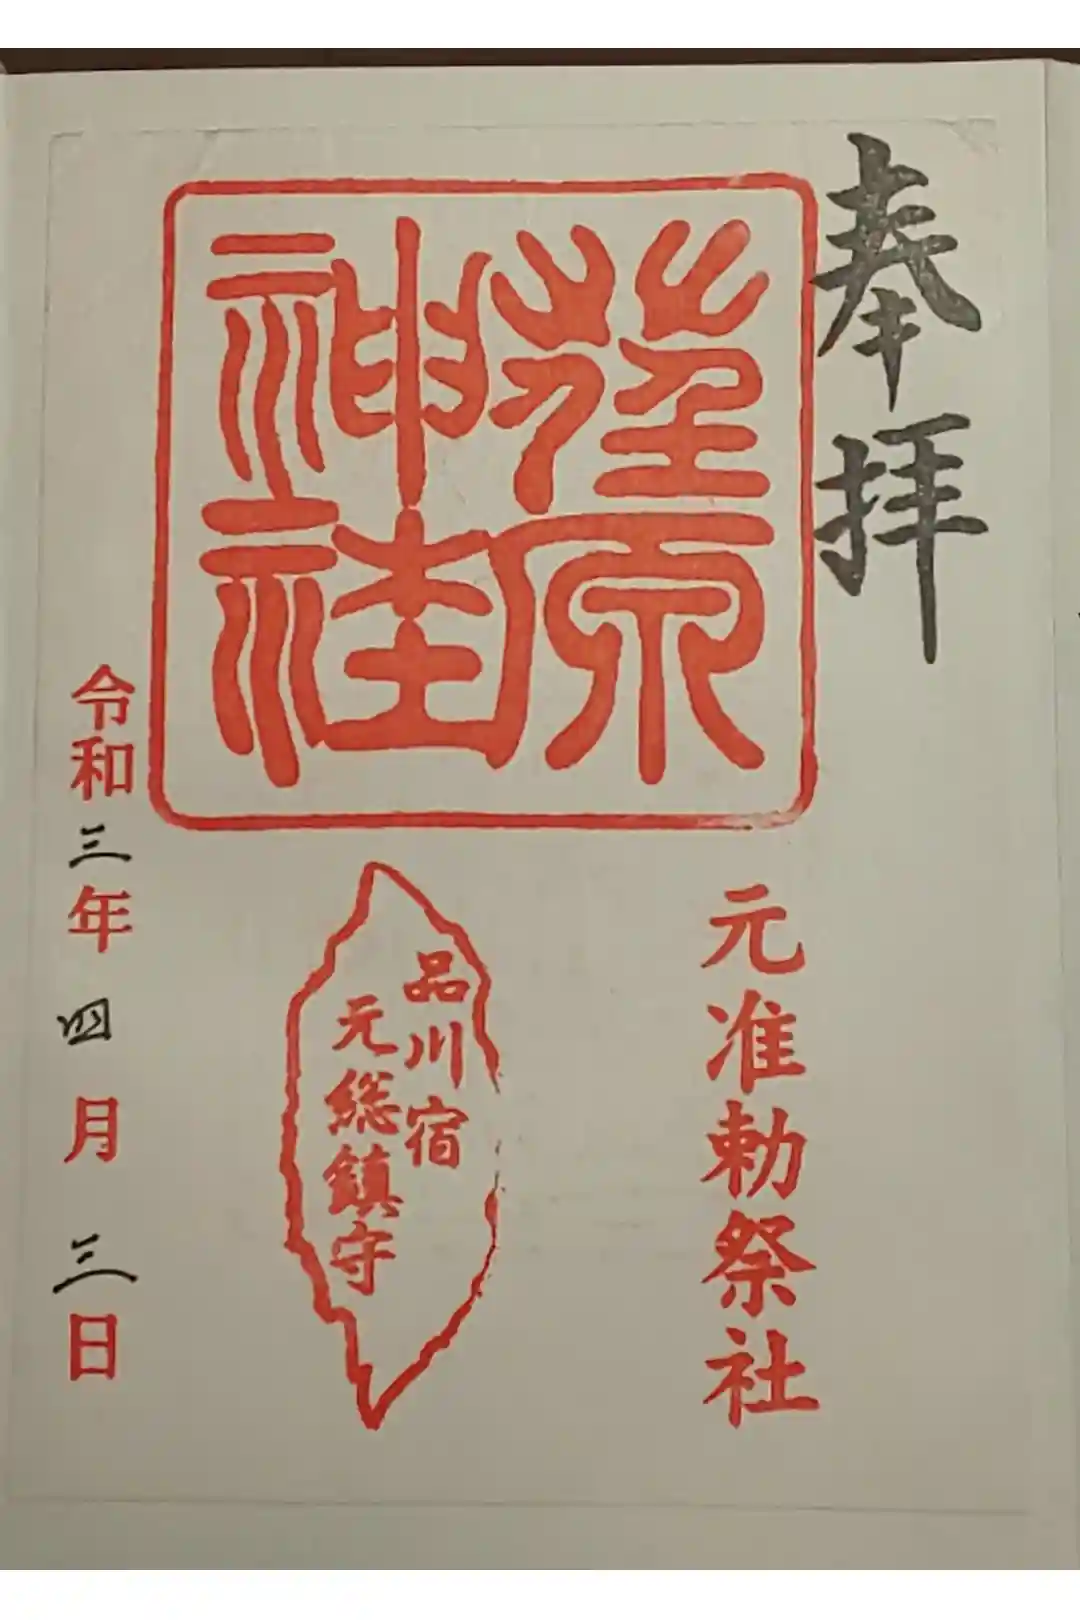 奉拝
元准勅祭社
荏原
神社
品川宿
元総鎮守
令和三年四月三日